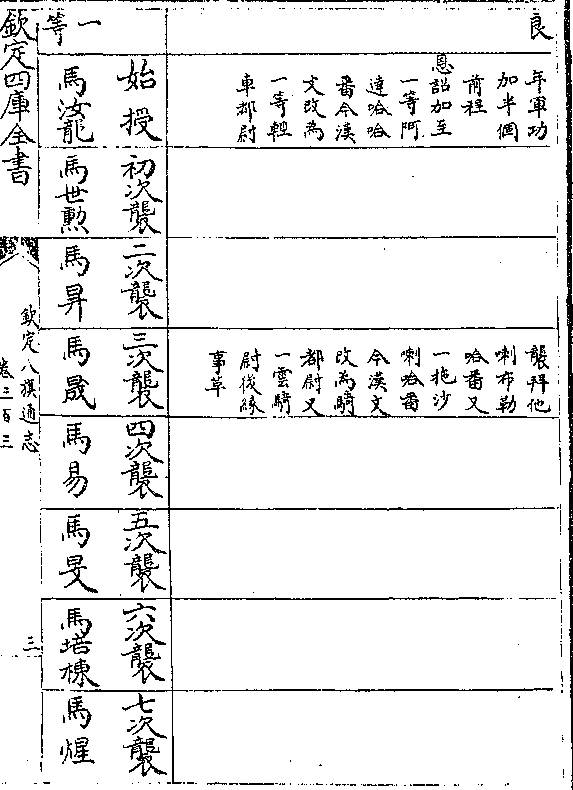 良
年軍功
加半個
前程
恩詔加至
一等阿
達哈哈
番今漢
文改為
一等輕
車都尉
襲拜他
喇布勒
哈番又
一拖沙
喇哈番
今漢文
改為騎
都尉又
一雲騎
尉後緣
事革
一等
始授
馬汝龍
初次襲
馬世勲
二次襲
馬昇
三次襲
馬晟
四次襲
馬易
五次襲
馬旻
六次襲
馬培棟
七次襲
馬煋
欽定四庫全書
欽定八旗通志
卷三百三
三